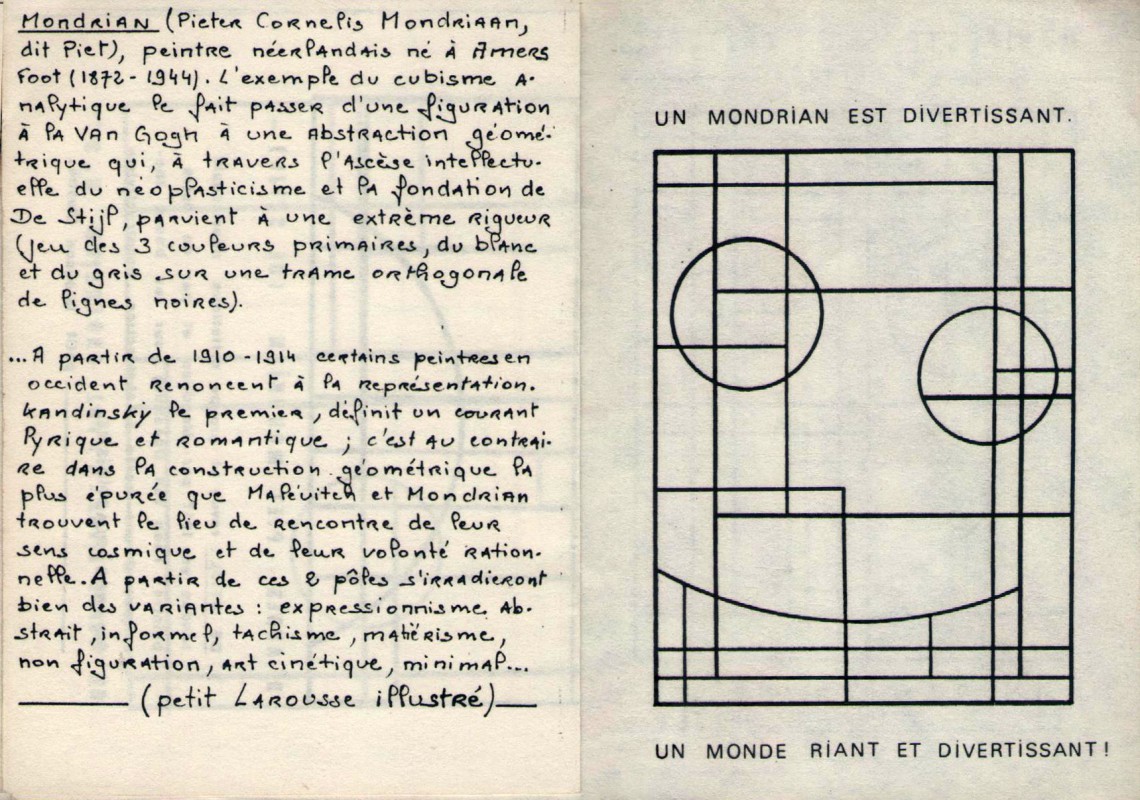 MONDRIAN (Pieter Cornelis Mondriaan,
dit Piet), peintre néerlandais né à Amers
foot (1872-1944). L'exemple du cubisme a-
nalytique le fait passer d'une figuration
à la Van Gogh à une abstraction géomé-
trique qui, à travers l'ascèse intellectu-
elle du néoplasticisme et la fondation de
De Stijl, parvient à une extrème rigueur
(jeu des 3 couleurs primaires, du blanc
et du gris sur une trame orthogonale
de lignes noires).
...A partir de 1910-1914 certains peintres en
occident renoncent à la représentation.
Kandinsky le premier, définit un courant
lyrique et romantique ; c'est au contrai-
re dans la construction géométrique la
plus épurée que Malévitch et Mondrian
trouvent le lieu de rencontre de leur
sens cosmique et de leur volonté ration-
nelle. A partir de ces 2 pôles s'irradieront
bien des variantes : expressionnisme ab-
strait, informel, tachisme, matiérisme,
non figuration, art cinétique, minimal...
(petit Larousse illustré)
UN MONDRIAN EST DIVERTISSANT.
UN MONDE RIANT ET DIVERTISSANT!